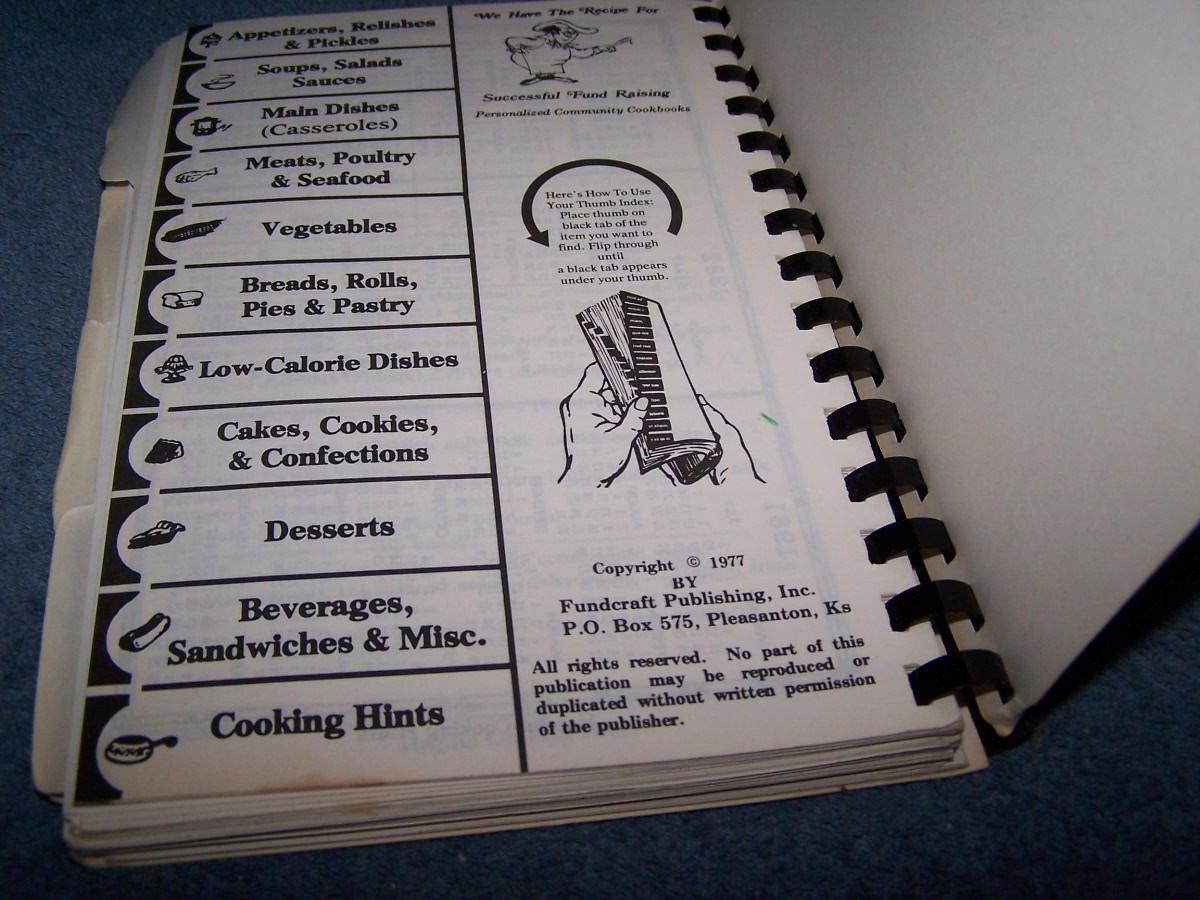 Appetizers, Relishes
& Pickles
Soups, Salads
Sauces
Main Dishes
(Casseroles)
Meats, Poultry
& Seafood
Vegetables
Breads, Rolls,
Pies & Pastry
Low-Calorie Dishes
Cakes, Cookies,
& Confections
Desserts
Beverages,
Sandwiches & Misc.
Cooking Hints
We Have The Recipe For
Successful Fund Raising
Personalized Community Cookbooks
Here's How To Use
Your Thumb Index:
Place thumb on
black tab of the
item you want to
find. Flip through
until
a black tab appears
under your thumb.
Copyright © 1977
BY
Fundcraft Publishing, Inc.
P.O. Box 575, Pleasanton, Ks
All rights reserved. No part of this
publication may be reproduced or
duplicated without written permission
of the publisher.